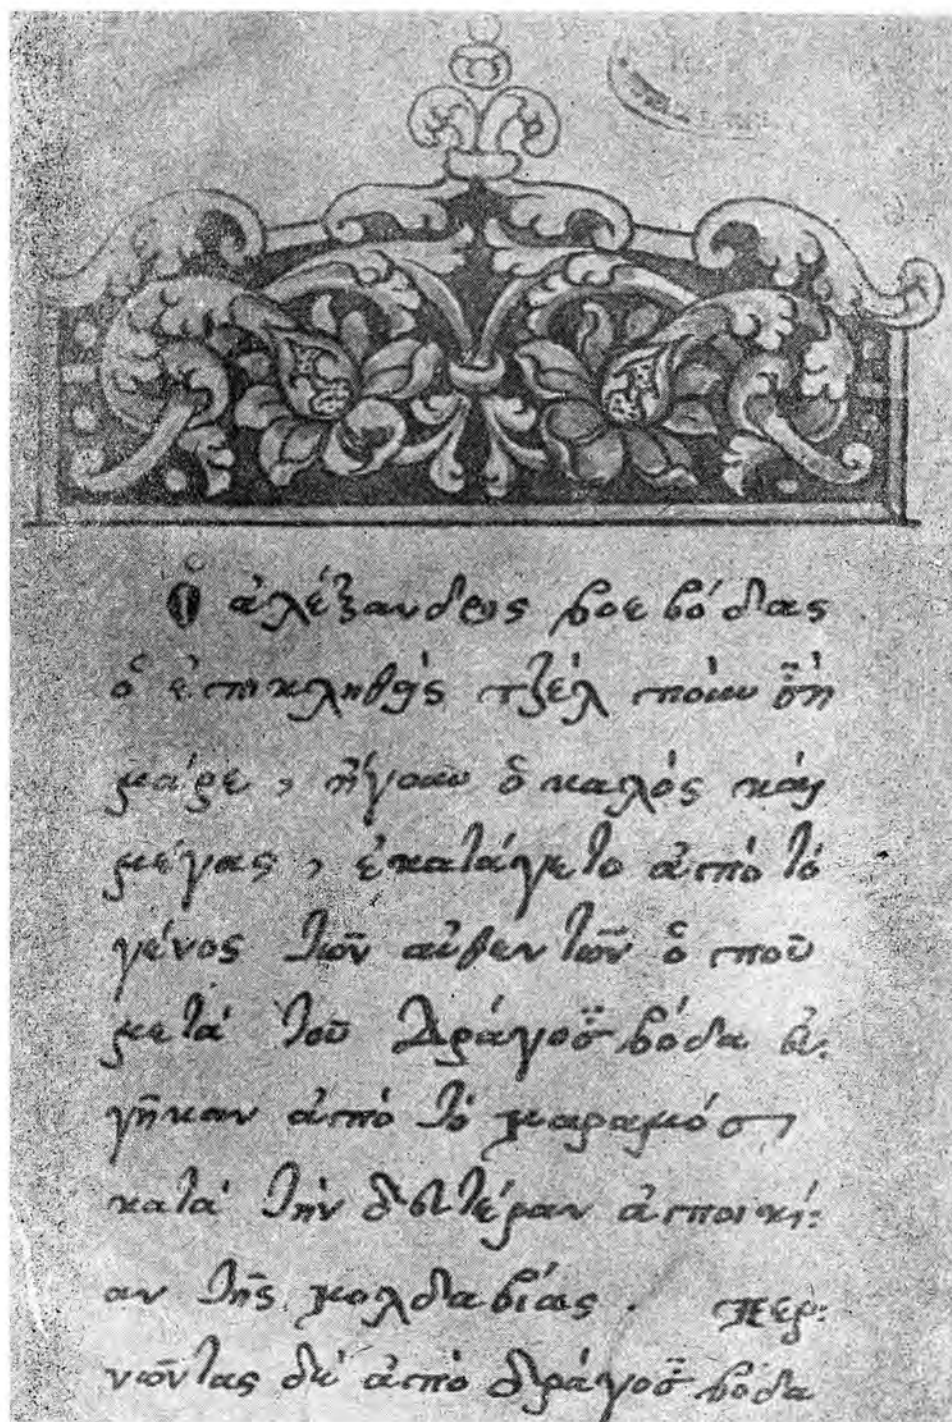 Ὁ ἀλέξανδρος βοεβόδας
ὁ ἐπικληθεὶς τζὲλ ποὺν σὴ
μάρε, ἤγουν ὁ καλὸς καὶ
μέγας, ἐκατάγετο ἀπὸ τὸ
γένος τῶν αὐθεντῶν ὁποῦ
μετὰ τοῦ Δράγοσ βόδα εὐ:
γῆκαν ἀπὸ τὸ μαραμόσι
κατὰ τὴν δευτέραν ἀποικί:
αν τῆς μολδαβίας. περ:
νῶντας δὲ ἀπὸ δράγοσ βόδα